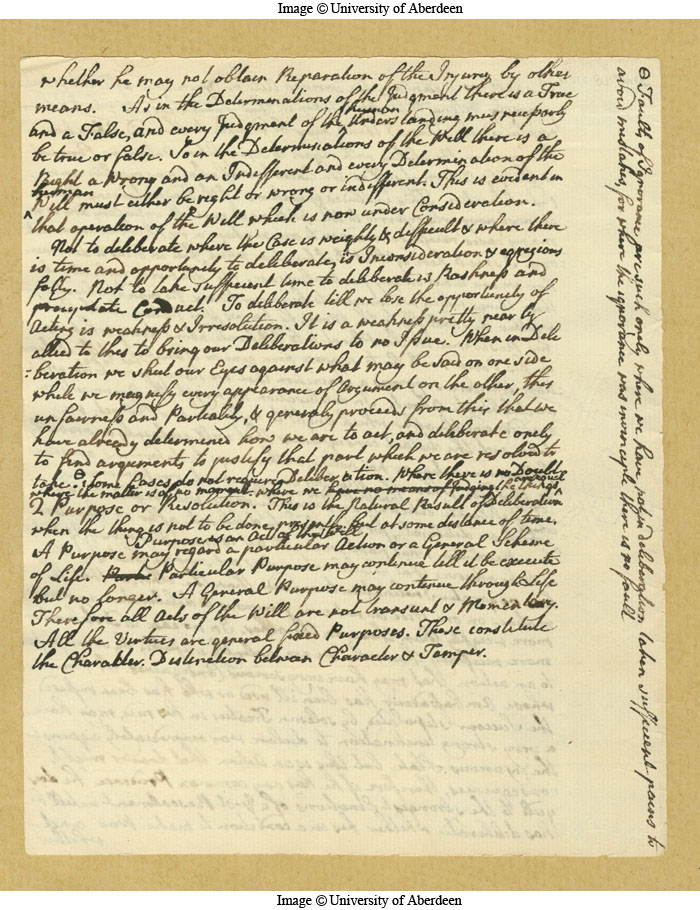 Image © University of Aberdeen
whether he may not obtain Reparation of the Injury by other
means. As in the Determinations of the Judgment there is a True
and a False, and every Judgment of the human Understanding must necessarly
be true or false. So in the Determinations of the Will there is a
Right a Wrong and an Indifferent and every Determination of the
human
Will must either be right or wrong or indifferent. This is evident in
that operation of the Will what is now under Consideration.
Not to deliberate where the Case is weighty & difficult & where there
is time and opportunity to deliberate, is Inconsideration & egregious
folly. Not to take sufficient time to deliberate is Rashness and
Conduct. To deliberate till we lose the opportunity of
Acting is weakness & Irresolution. It is a weakness pretty nearly
allied to this to bring our Deliberations to no Issue. When in Deli
=beration we shut our Eyes against what may be said on one side
while we magnify every appearance of Argument on the other, this
unfairness and Partiality, & generaly proceeds from this that we
have already determined how we are to act, and deliberate onely
to find arguments to justify that part which we are resolved to
take. ϴ Some Cases do not require Deliberation. Where there is no Doubt
where the matter is of no moment. where we have no means of Judging
2 Purpose or Resolution. This is the Natural Result of Deliberation
when the thing is not to be done presently but at some distance of time.
Purpose is an Act of the Will
A Purpose may regard a particular Action or a General Scheme
of Life. Particular Purpose may continue till it be execute
but no longer. A General Purpose may continue through Life
Therefore all Acts of the Will are not transient & Momentary.
All the Virtues are general fixed Purposes. These constitute
the Charakter. Distinction between Character & Temper.
ϴ Faults of Ignorance are such onely where we have not in deliberation taken sufficient pains to
avoid mistakes, for where the ignorance was invincyble there is no fault
Image © University of Aberdeen